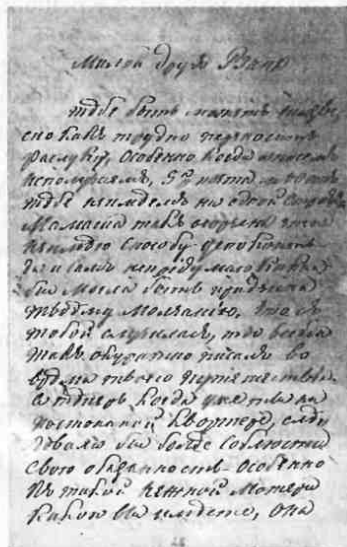 Милой друхъ Ваня
тебе быть можетъ
сно какъ трудно переносить
разлуку, особенно когда писемъ
неполучаемъ, 5ть почтъ мы отъ
тебе неимеемъ ни одной строчки
Мамаша такъ огорчена этимъ
неимею способу успокоить
да и самъ непридумаю какая
бы могла быть причина
твоему молчанию, что съ
тобой случилось, ты всегда
такъ акуратно писалъ во
время твоего путешествия
а теперь когда уже ты на
постоянной квартере, следовало
бы более соблюсти
свою обязанность особенно
къ такой нежной матери
какою вы имеете, она